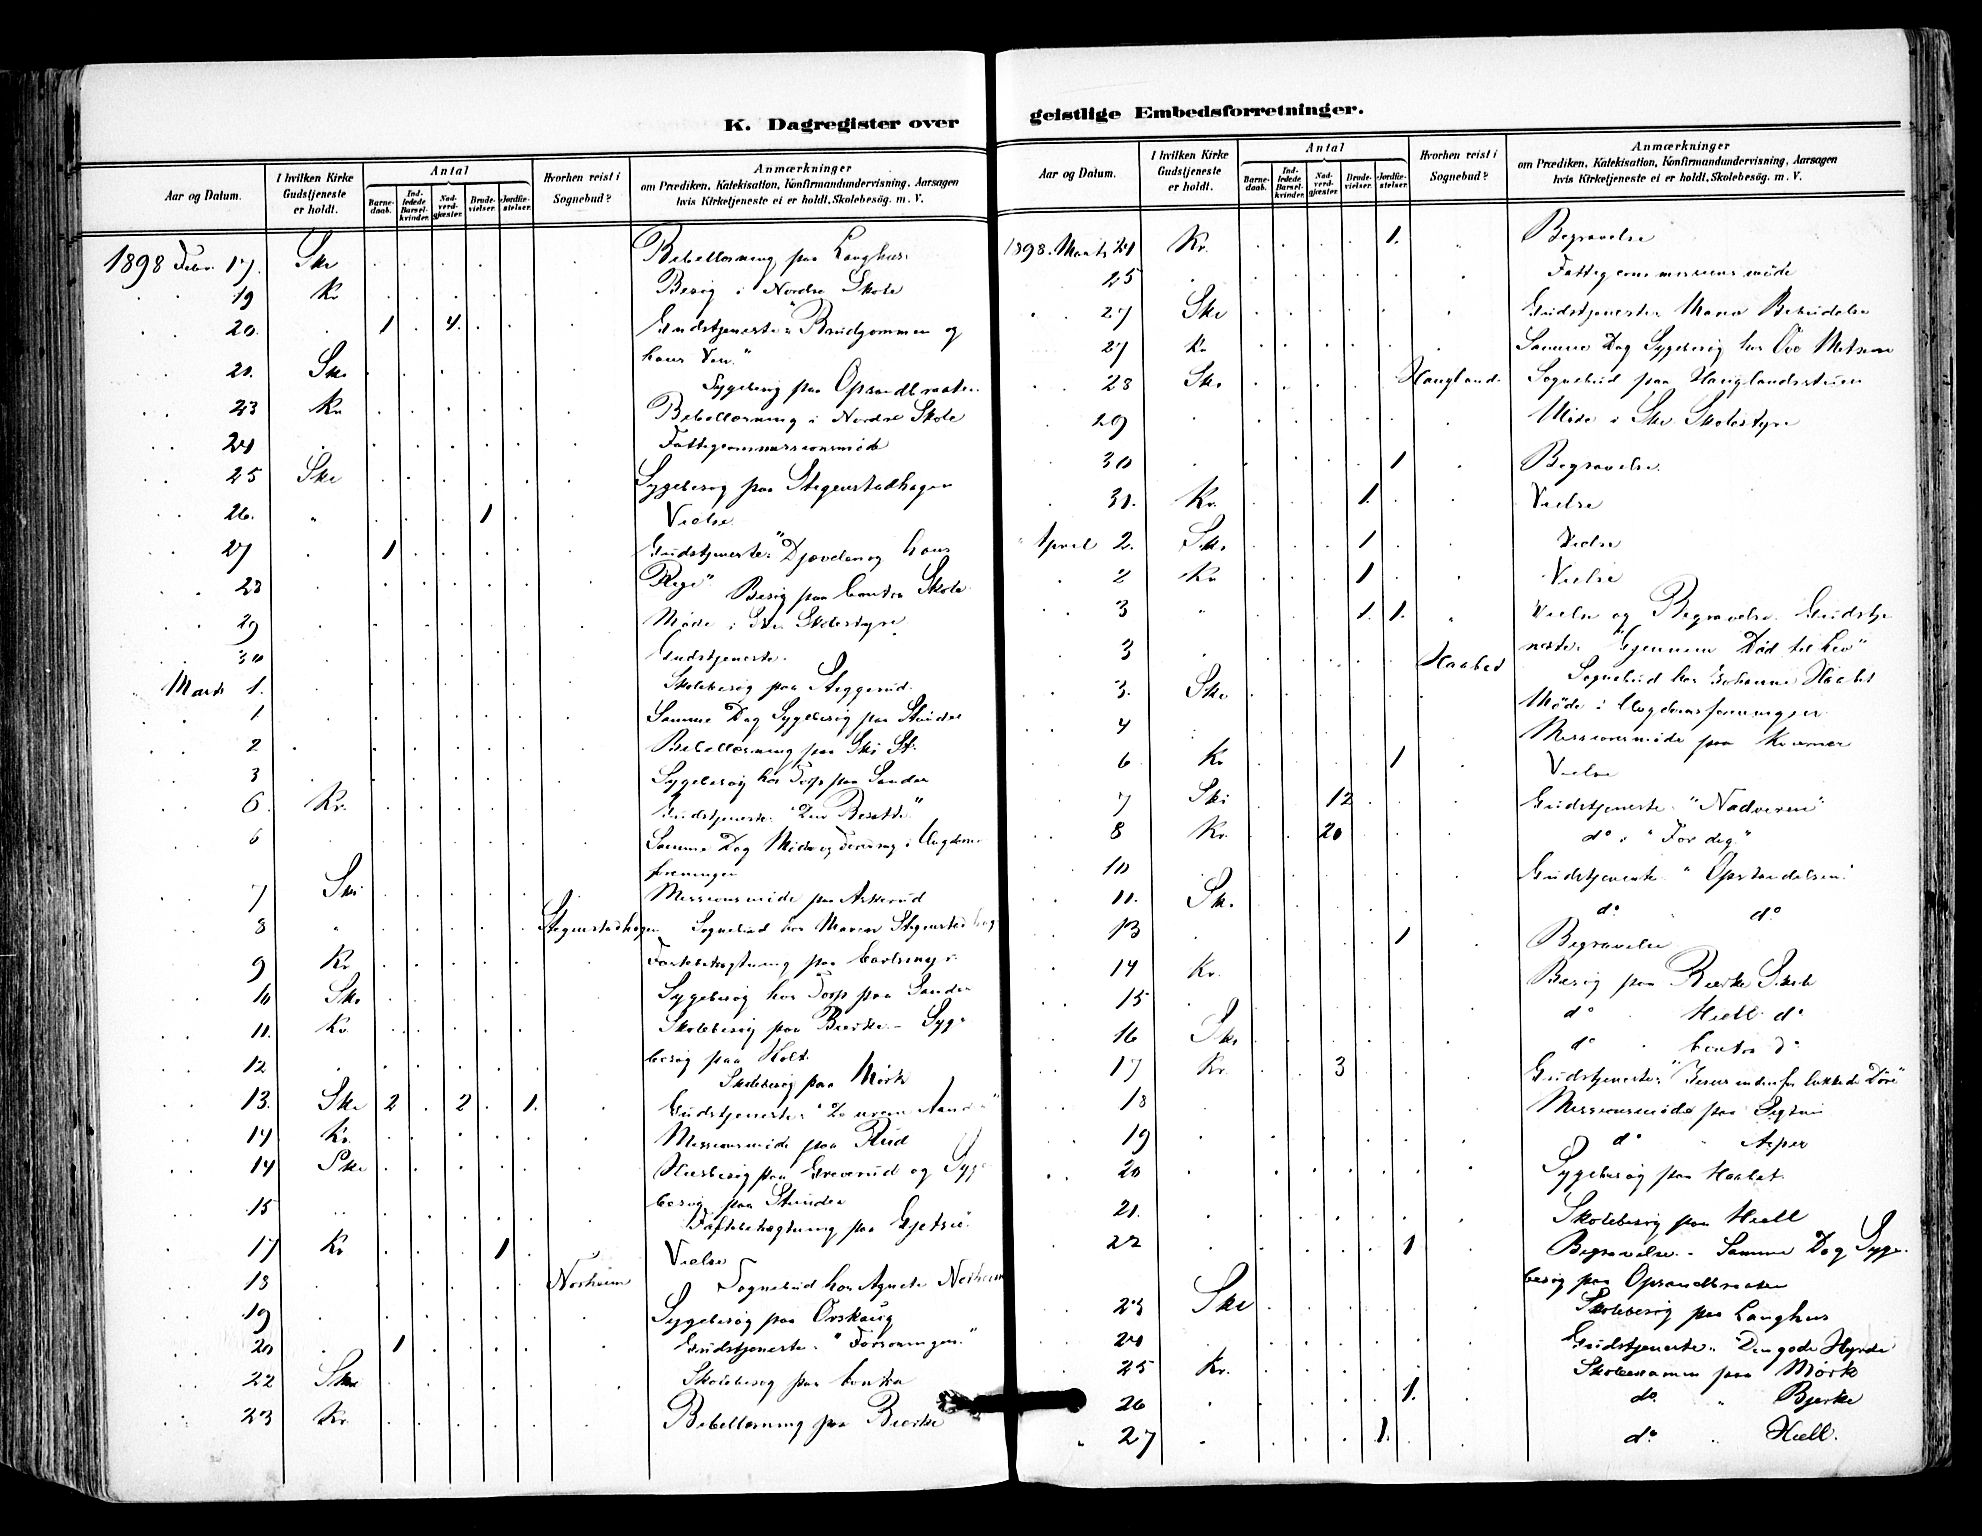 K. Dagregister over
geistlige Embedsforretninger.
Aar og Datum.
I hvilken Kirke
Gudstjeneste
er holdt.
Antal
Barne-
daab.
Ind-
ledede
Barsel-
kvinder.
Nad-
verd-
gjæster.
Brude-
vielser.
Jordfæ-
stelser.
Hvorhen reist i
Sognebud?
Anmærkninger
om Prædiken, Katekisation, Konfirmandundervisning, Aarsagen
hvis Kirketjeneste ei er holdt, Skolebesög, m. V.
1898 Febr. 17. Ski Bibellæsning paa Langhus.
19 Kr Besøg i Nordre Skole
20. 1 4. Gudstjeneste: "Brudgommen og
hans Ven."
21. Ski Sygebesøg paa Opsandbraaten
23 Kr Bibellæsning i Nordre Skole
24 Fattigcommissionsmöde
25 Ski Sygebesøg paa Stegenstadhagen
26. " 1 Vielse.
27 1 Gudstjeneste: "Djævelen og hans
Rige"
28 Besøg paa Centra Skole
29 Møde i Ski Skolestyre
30 Gudstjeneste.
Marts 1. Skolebesøg paa Steggerud.
1 Samme Dag Sygebesøg paa
2 Bibellæsning paa Ski St.
3 Sygebesøg hos Torp paa Sander
6. Kr. Gudstjeneste. "Den Besatte"
6 Samme Dag Møde og Foredrag i Ungdoms
foreningen
7 Ski Missionsmöde paa Askerud
8 " Stegenstadhagen Sognebud hos Maren
9 Kr paa
10 Ski Sygebesøg hos Torp paa Sander
11. Kr Skolebesøg paa Bierke - Syge
besøg paa Holt.
12 Skolebesøg paa Mörk
13. Ski 2 2 1. Gudstjeneste: "
14 Kr. Missionsmöde paa Rud
14 Ski Husbesøg paa Greverud og Syge
besøg paa
15 paa
17 Kr 1 Vielse
18 Norheim Sognebud hos Agnete Norheim
19 Sygebesøg paa Orskaug
20 1 Gudstjeneste: "Forsoningen."
22 Ski Skolebesøg paa Centra
23 Kr. Bibellæsning paa Bierke
Aar og Datum.
I hvilken Kirke
Gudstjeneste
er holdt.
Antal
Barne-
daab.
Ind-
ledede
Barsel-
kvinder.
Nad-
verd-
gjæster.
Brude-
vielser.
Jordfæ-
stelser.
Hvorhen reist i
Sognebud?
Anmærkninger
om Prædiken, Katekisation, Konfirmandundervisning, Aarsagen
hvis Kirketjeneste ei er holdt, Skolebesög, m. V.
1898. Marts 24 Kr. 1. Begravelse
25 Fattigcommissionsmöde
27 Ski Gudstjeneste: Maria Bebudelse
27 Kr Samme Dag Sygebesøg hos
28 Ski Haugland Sognebud paa Hauglandsstuen
29 Møde i Ski Skolestyre
30 1 Begravelse.
31. Kr. 1. Vielse
April 2. Ski 1 Vielse
2 Kr 1 Vielse
3 " 1 1. Vielse og Begravelse. Gudstje
neste: "Gjennem Død til Liv"
3 Haabet Sognebud hos Johanne Haabet
3. Ski Møde i Ungdomsforeningen
4 Missionsmöde paa Kværner
6 Kr 1 Vielse
7 Ski 12 Gudstjeneste. "Nadveren"
8 Kr. 20 do: "For dig"
10 Gudstjeneste. "Opstandelsen"
11. Ski do do
13 1 Begravelse
14 Kr. Besøg paa Bierke Skole
15 do " Hiell do
16 Ski do " Centra do
17 Kr. 3 Gudstjeneste: "Jesus indenfor lukkede Döre"
18 Missionsmöde paa
19 do " Asper
20 Sygebesøg paa Haabet.
21. Skolebesøg paa Hiell
22 1 Begravelse. - Samme Dag Syge-
besøg paa Opsandbraaten
23 Ski Skolebesøg paa Langhus
24 Gudstjeneste: "Den gode Hyrde"
25 Kr. Skoleexamen paa Mörk
26 1. do. " Bjerke
27 1. do. " Hiell.